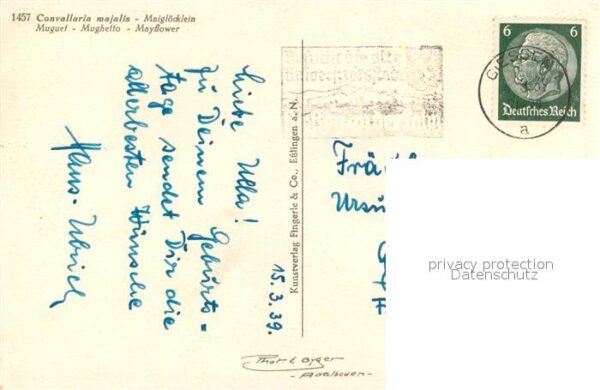 1457 Convallaria majalis - Maiglöcklein
Muguet - Mughetto - Mayflower
Liebe Ulla!
Zu Deinem Geburts=
tage sendet Dir die
allerbesten Wünsche
Hans-Ulrich
15.3.39.
Kunstverlag Fingerle & Co., Eßlingen a. N.
6 6
Deutsches Reich
a
Fräul
Ursu
privacy protection
Datenschutz
Thor E Gyger
- Adelboden -